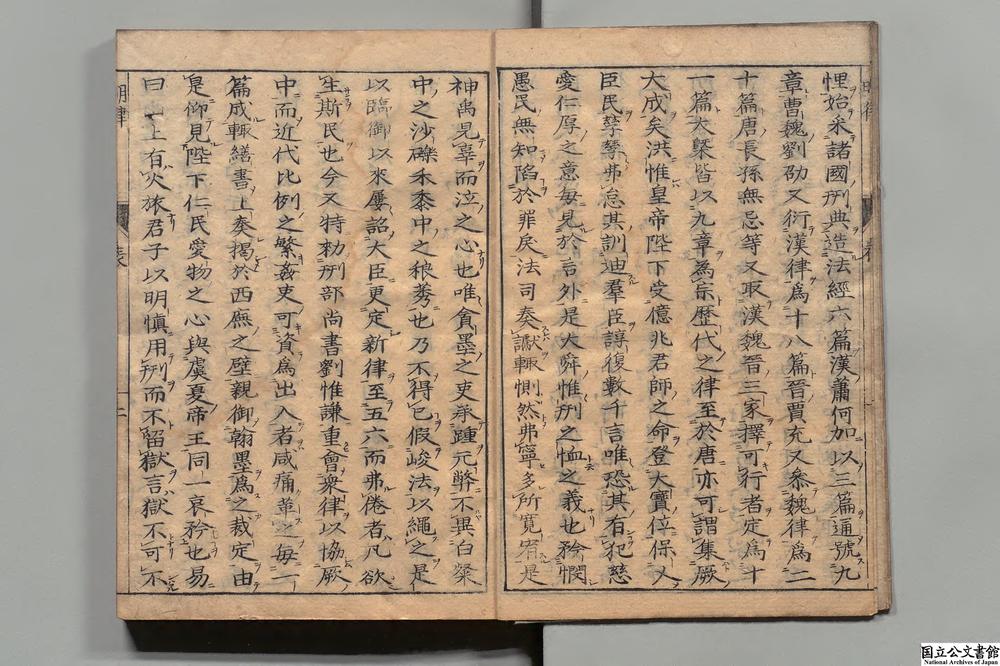 悝始采諸國刑典造法經六篇漢蕭何加以三篇通號九
章曹魏劉劭又衍漢律爲十八篇晉賈充又叅魏律爲二
十篇唐長孫無忌等又取漢魏晉三家擇可行者定爲十
一篇大槩皆以九章爲宗歷代之律至於唐亦可謂集厥
大成矣洪惟皇帝陛下受億兆君師之命登大寶位保乂
臣民孳孳弗怠其訓迪羣臣諄復數千言唯恐其有犯慈
愛仁厚之意毎見於言外是大舜惟刑之恤之義也矜憫
愚民無知陷於罪戾法司奏讞輙惻然弗寧多所寬宥是
神禹見辜而泣之心也唯貪墨之吏承踵元弊不異白粲
中之沙礫禾黍中之稂莠也乃不得已假峻法以繩之是
以臨御以來屢詔大臣更定新律至五六而弗倦者凡欲
生斯民也今又特勅刑部尚書劉惟謙重會衆律以協厥
中而近代比例之繁姦吏可資爲出入者咸痛革之毎一
篇成輙繕書上奏揭於西廡之壁親御翰墨爲之裁定由
是仰見陛下仁民愛物之心與虞夏帝王同一哀矜也易
曰山上有火旅君子以明愼用刑而不留獄言獄不可不
明律
表
二
国立公文書館
National Archives of Japan